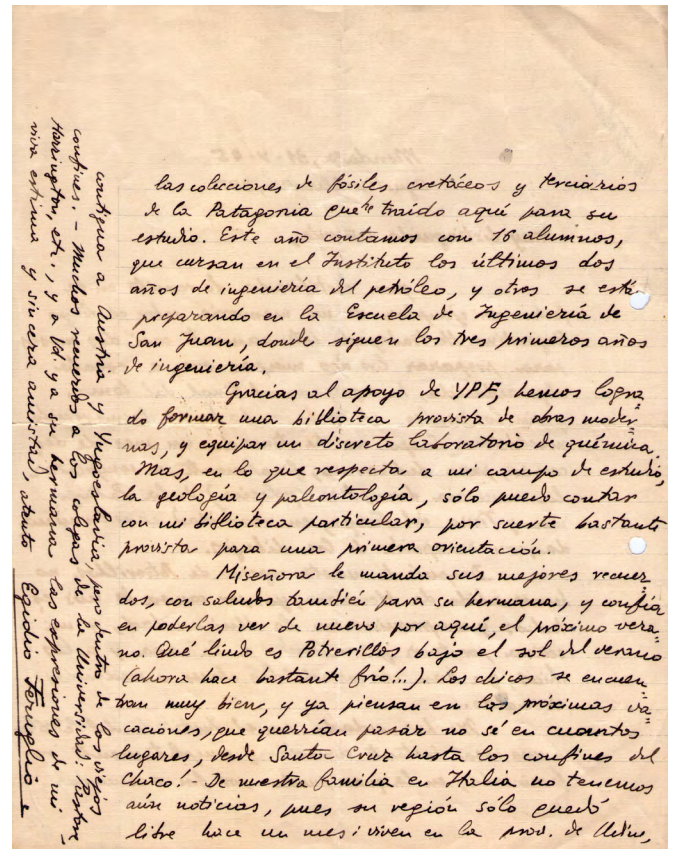 las colecciones de fósiles cretáceos y terciarios
de la Patagonia que he traído aquí para su
estudio. Este año contamos con 16 alumnos,
que cursan en el Instituto los últimos dos
años de ingeniería del petróleo, y otros se están
preparando en la Escuela de Ingeniería de
San Juan, donde siguen los tres primeros años
de ingeniería.
Gracias al apoyo de YPF, hemos logra=
do formar una biblioteca provista de obras moder=
nas, y equipar un discreto laboratorio de química.
Mas, en lo que respecta a mi campo de estudio,
la geología y paleontología, sólo puedo contar
con mi biblioteca particular, por suerte bastante
provista para una primera orientación.
Mi señora le manda sus mejores recuer=
dos, con saludos también para su hermana, y confía
en poderlas ver de nuevo por aquí, el próximo vera=
no. Qué lindo es Potrerillos bajo el sol del verano
(ahora hace bastante frío!...). Los chicos se encuen=
tran muy bien, y ya piensan en los próximas va=
caciones, que querrían pasar no sé en cuantos
lugares, desde Santa Cruz hasta los confines del
Chaco! - De nuestra familia en Italia no tenemos
aún noticias, pues su región sólo quedó
libre hace un mes: viven en la prov. de Udine,
contigua a Austria y Yugoeslavia, pero dentro de los viejos
confines. - Muchos recuerdos a los colegas de la Universidad:
Harrington, etc., y a Vd. y a su hermana las expresiones de mi
viva estima y sincera amistad, atento Egidio Feruglio